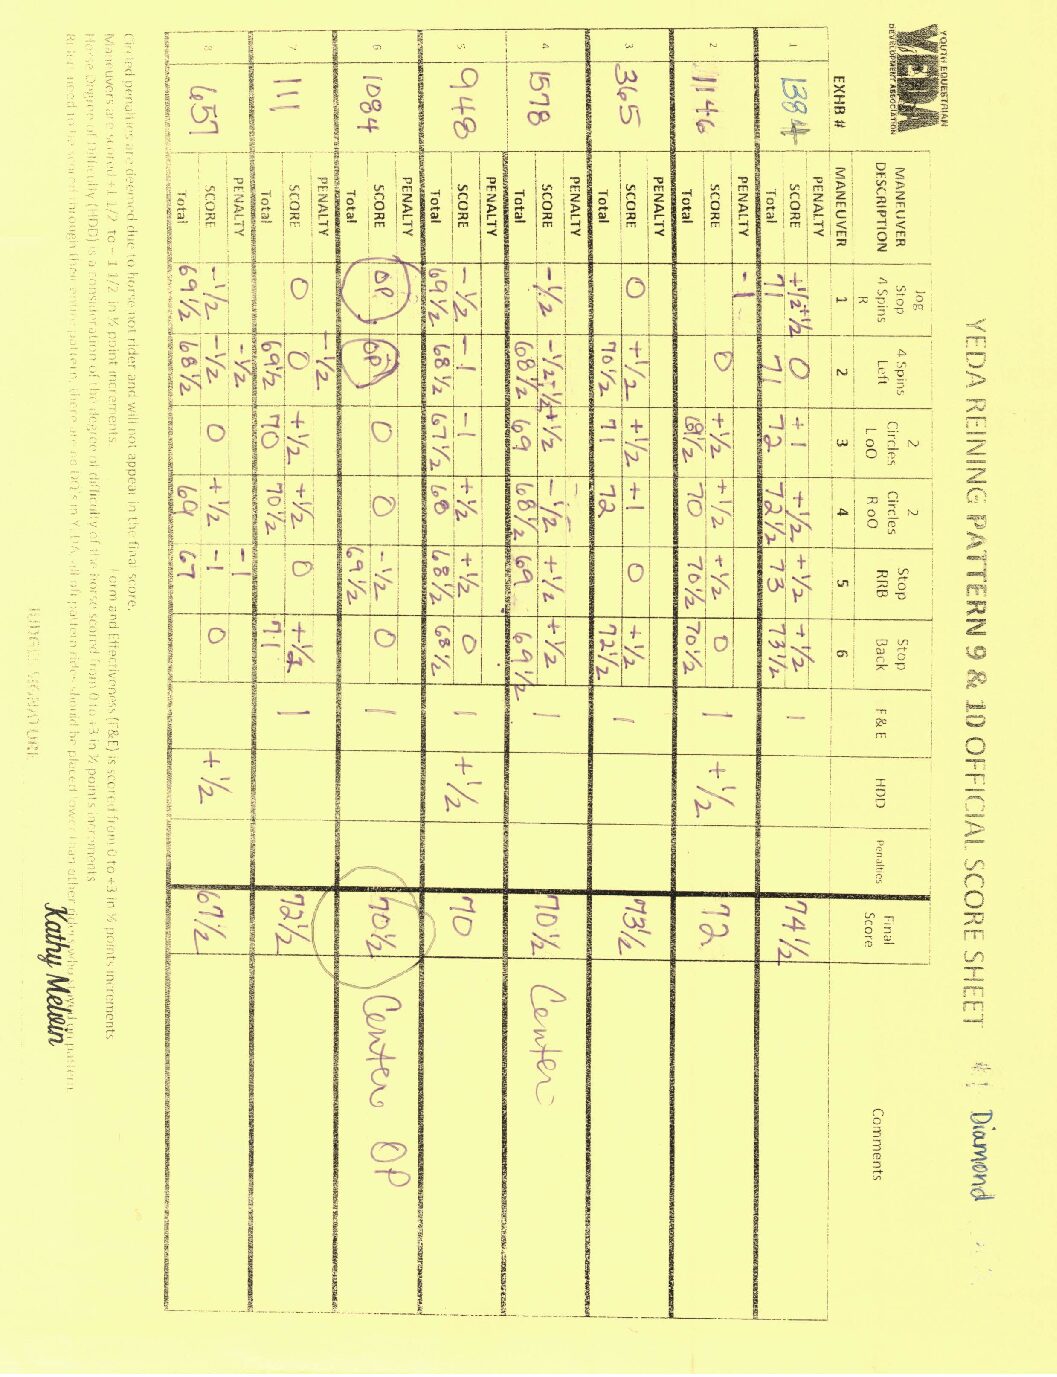 YOUTH EQUESTRIAN
YEDA
DEVELOPMENT ASSOCIATION
YEDA REINING PATTERN 9 & 10 OFFICIAL SCORE SHEET #1 Diamond
MANEUVER DESCRIPTION Jog Stop 4 Spins R 4 Spins Left 2 Circles LoO 2 Circles RoO Stop RRB Stop Back F&E HDD Penalties Final Score Comments
EXHB # MANEUVER 1 2 3 4 5 6
PENALTY
1 1384 SCORE +½+½ 0 +1 +½ +½ +½ 1 74½
Total 71 71 72 72½ 73 73½
PENALTY -1
2 1146 SCORE 0 +½ +½ +½ 0 1 +½ 72
Total 69½ 70 70½ 70½
PENALTY
3 365 SCORE 0 +½ +½ +1 0 +½ 1 73½
Total 70½ 71 72 72½
PENALTY
4 1578 SCORE -½ -½-½ +½ -½ +½ +½ 1 70½ Center
Total 68½ 69 68½ 69 69½
PENALTY
5 948 SCORE -½ -1 -1 +½ +½ 0 1 +½ 70
Total 69½ 68½ 67½ 68 68½ 68½
PENALTY
6 1084 SCORE OP OP 0 0 -½ 0 1 70½ Center OP
Total 69½
PENALTY -½
7 111 SCORE 0 0 +½ +½ 0 +½ 1 72½
Total 69½ 70 70½ 71
PENALTY -½ -1
8 657 SCORE -½ -½ 0 +½ -1 0 +½ 67½
Total 69½ 68½ 69 67
Circled penalties are deemed due to horse not rider and will not appear in the final score.
Maneuvers are scored +1 1/2 to -1 1/2 in ½ point increments Form and Effectiveness (F&E) is scored from 0 to +3 in ½ points increments
Horse Degree of Difficulty (HDD) is a consideration of the degree of difficulty of the horse scored from 0 to +3 in ½ points increments
JUDGE SIGNATURE
Kathy Melvin